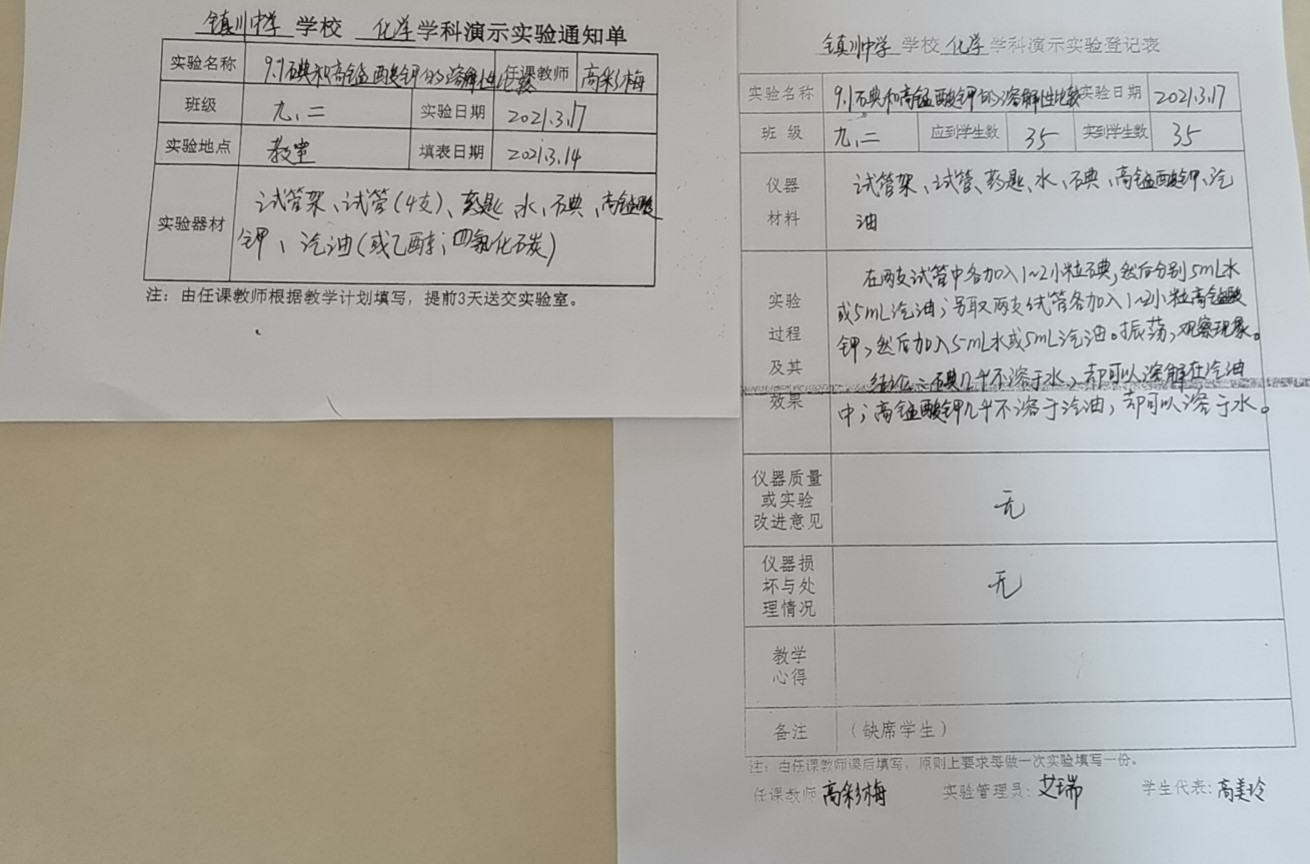 镇川中学 学校 化学学科演示实验通知单
实验名称 9.1碘和高锰酸钾的溶解性比较 任课教师 高彩梅
班级 九、二 实验日期 2021.3.17
实验地点 教室 填表日期 2021.3.14
实验器材 试管架、试管(4支)、药匙、水、碘、高锰酸
钾、汽油(或乙醇、四氯化碳)
注：由任课教师根据教学计划填写，提前3天送交实验室。
镇川中学 学校 化学 学科演示实验登记表
实验名称 9.1碘和高锰酸钾的溶解性比较 实验日期 2021.3.17
班 级 九、二 应到学生数 35 实到学生数 35
仪器
材料
试管架、试管、药匙、水、碘、高锰酸钾、汽
油
实验
过程
及其
效果
在两支试管中各加入1~2小粒碘,然后分别5mL水
或5mL汽油;另取两支试管各加入1~2小粒高锰酸
钾,然后加入5mL水或5mL汽油。振荡,观察现象。
结论:碘几乎不溶于水,却可以溶解在汽油
中;高锰酸钾几乎不溶于汽油,却可以溶于水。
仪器质量
或实验
改进意见
无
仪器损
坏与处
理情况
无
教学
心得
备注 (缺席学生)
注：由任课教师课后填写，原则上要求每做一次实验填写一份。
任课教师 高彩梅 实验管理员: 艾瑞 学生代表: 高美玲